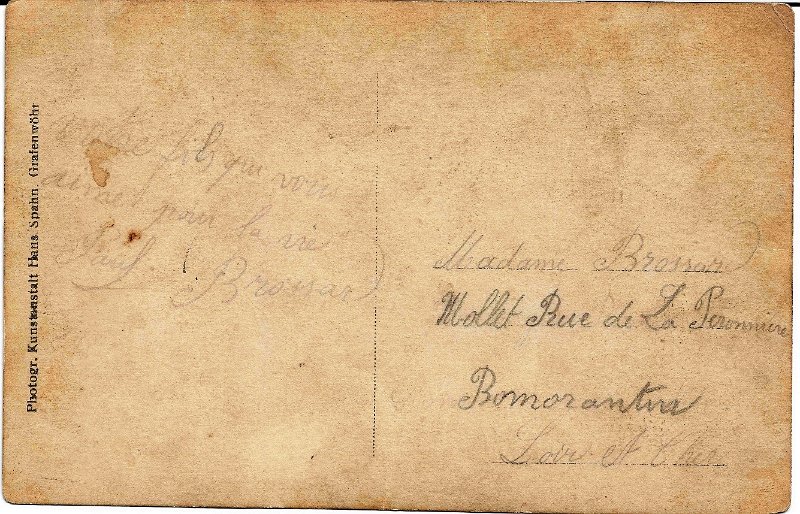 Photogr. Kunstanstalt Hans Spahn. Grafenwöhr
votre fils qui vous
aime pour la vie
Paul Brossard
Madame Brossard
Mollet Rue de La Peronnière
Romorantin
Loir et Cher